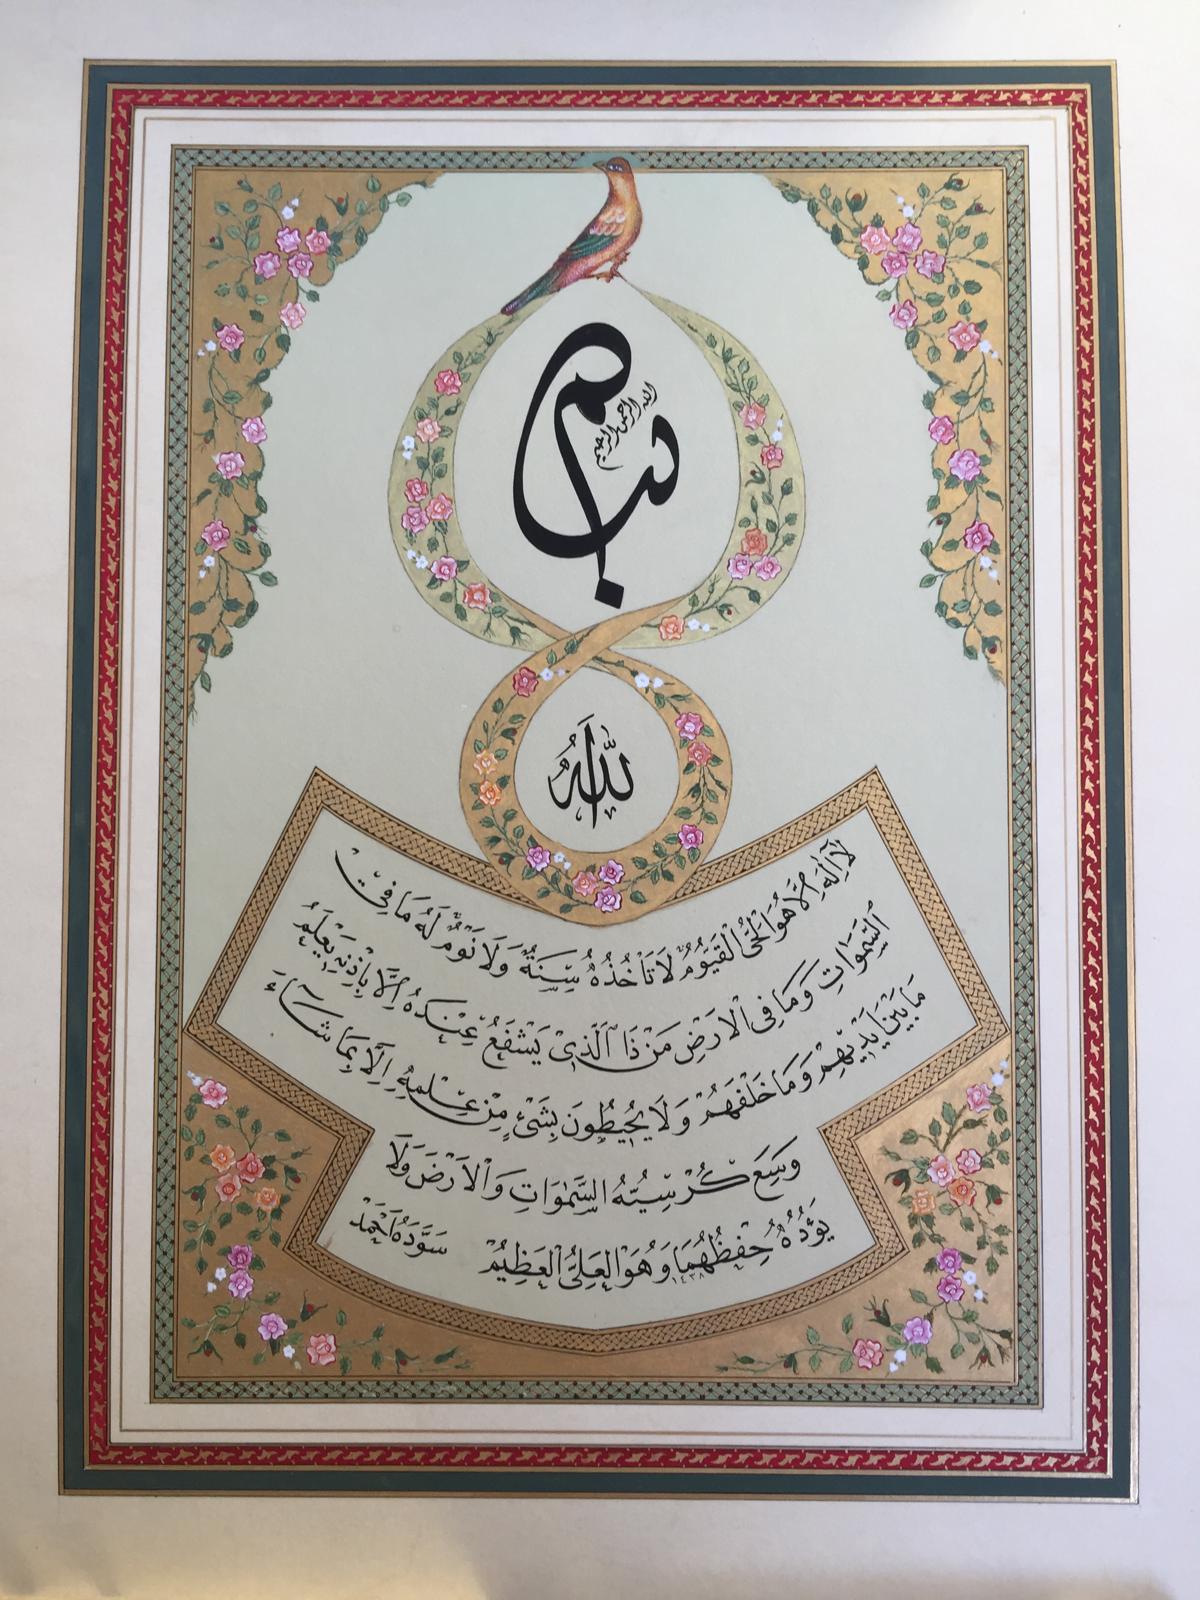 بسم
الله الرحمن الرحيم
اَللّٰهُ
لَٓا اِلٰهَ اِلَّا هُوَ الْحَىُّ الْقَيُّومُ لَا تَأْخُذُهُ سِنَةٌ وَلَا نَوْمٌ لَهُ مَا فِى
السَّمٰوَاتِ وَمَا فِى الْاَرْضِ مَنْ ذَا الَّذِى يَشْفَعُ عِنْدَهُ اِلَّا بِاِذْنِهِ يَعْلَمُ
مَا بَيْنَ اَيْدِيهِمْ وَمَا خَلْفَهُمْ وَلَا يُحِيطُونَ بِشَىْءٍ مِنْ عِلْمِهِ اِلَّا بِمَا شَاءَ
وَسِعَ كُرْسِيُّهُ السَّمٰوَاتِ وَالْاَرْضَ وَلَا
يَؤُدُهُ حِفْظُهُمَا وَهُوَ الْعَلِىُّ الْعَظِيمُ
سَوَّدَهُ اَحْمَد
١٤٣٨